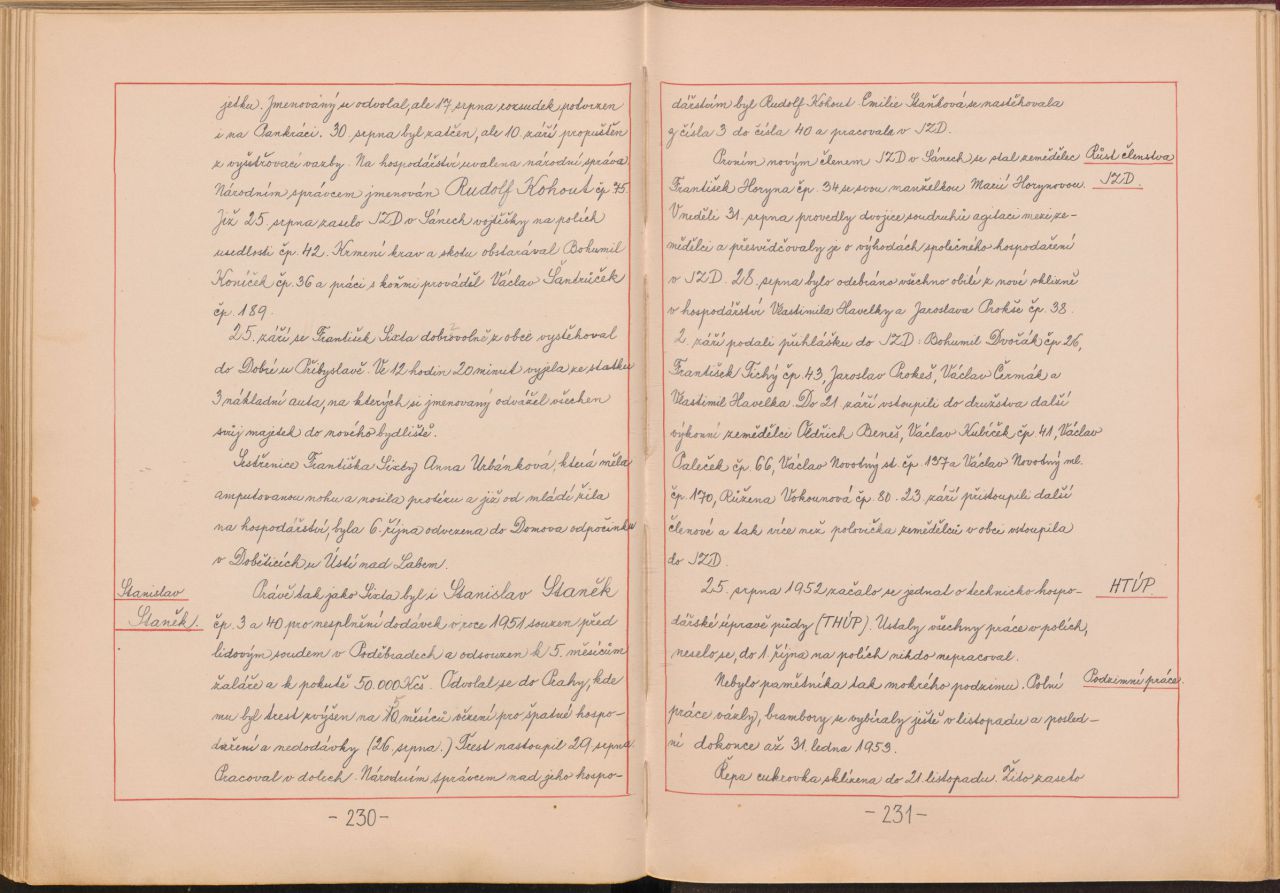 jetku. Jmenovaný se odvolal, ale 17. srpna rozsudek potvrzen
i na Pankráci. 30. srpna byl zatčen, ale 10. září propuštěn
z vyšetřovací vazby. Na hospodářství uvalena národní správa.
Národním správcem jmenován Rudolf Kohout čp 75.
Již 25 srpna zaselo JZD v Sánech vojtěšky na polích
usedlosti čp. 42. Krmení krav a skotu obstarával Bohumil
Koníček čp. 36 a práci s koňmi prováděl Václav Šantrůček
čp. 189.
25. září se František Sixta dobrovolně z obce vystěhoval
do Dobré u Přibyslavě. Ve 12 hodin 20 minut vyjela ze statku
3 nákladní auta, na kterých si jmenovaný odvážel všechen
svůj majetek do nového bydliště.
Sestřenice Františka Sixty Anna Urbánková, která měla
amputovanou nohu a nosila protézu a již od mládí žila
na hospodářství, byla 6. října odvezena do Domova odpočinku
v Dobětících u Ústí nad Labem.
Stanislav
Staněk.
Právě tak jako Sixta byl i Stanislav Staněk
čp. 3 a 40 pro nesplnění dodávek v roce 1951 souzen před
lidovým soudem v Poděbradech a odsouzen k 5. měsícům
žaláře a k pokutě 50.000 Kčs. Odvolal se do Prahy, kde
mu byl trest zvýšen na měsíců vězení pro špatné hospo-
daření a nedodávky (26. srpna.) Trest nastoupil 29 srpna.
Pracoval v dolech. Národním správcem nad jeho hospo-
-230-
dářstvím byl Rudolf Kohout. Emilie Staňková se nastěhovala
z čísla 3 do čísla 40 a pracovala v JZD.
Prvním novým členem JZD v Sánech se stal zemědělec
Růst členstva
JZD.
František Horyna čp. 34 se svou manželkou Marií Horynovou.
V neděli 31. srpna provedly dvojice soudruhů agitaci mezi ze-
mědělci a přesvědčovaly je o výhodách společného hospodaření
v JZD. 28. srpna bylo odebráno všechno obilí z nové sklizně
v hospodářství Vlastimila Havelky a Jaroslava Prokše čp. 38.
2. září podali přihlášku do JZD: Bohumil Dvořák čp 26,
František Tichý čp. 43, Jaroslav Prokeš, Václav Čermák a
Vlastimil Havelka. Do 21. září vstoupili do družstva další
výkonní zemědělci Oldřich Beneš, Václav Kubíček čp. 41, Václav
Paleček čp. 66, Václav Novotný st. čp. 157 a Václav Novotný ml.
čp. 170, Růžena Vokounová čp. 80. 23. září přistoupili další
členové a tak více než polovička zemědělců v obci vstoupila
do JZD.
25. srpna 1952 začalo se jednat o technicko hospo-
HTÚP.
dářské úpravě půdy (THÚP). Ustaly všechny práce v polích,
neselo se, do 1. října na polích nikdo nepracoval.
Nebylo pamětníka tak mokrého podzimu. Polní
Podzimní práce.
práce vázly, brambory se vybíraly ještě v listopadu a posled-
ní dokonce až 31. ledna 1953.
Řepa cukrovka sklizena do 21. listopadu. Žito zaseto
-231-